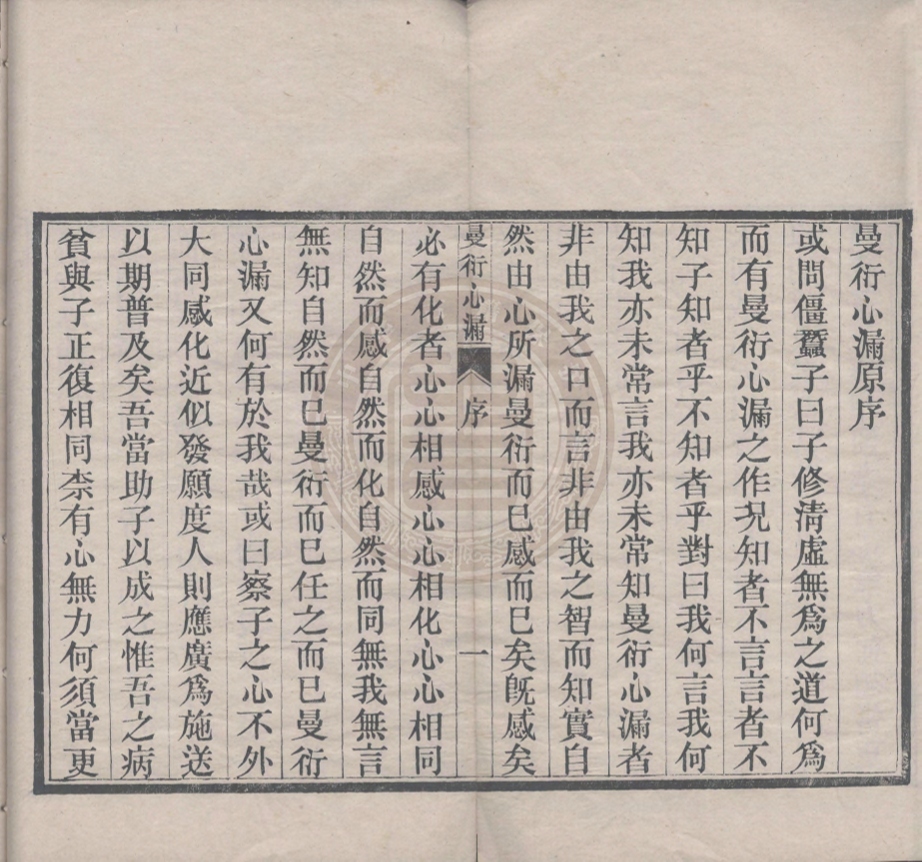 曼衍心漏原序
或問僵蠶子曰子修清虛無爲之道何爲
而有曼衍心漏之作况知者不言言者不
知子知者乎不知者乎對曰我何言我何
知我亦未常言我亦未常知曼衍心漏者
非由我之口而言非由我之智而知實自
然由心所漏曼衍而巳感而巳矣旣感矣
曼衍心漏 序 一
必有化者心心相感心心相化心心相同
自然而感自然而化自然而同無我無言
無知自然而巳曼衍而巳任之而巳曼衍
心漏又何有於我哉或曰察子之心不外
大同感化近似發願度人則應廣爲施送
以期普及矣吾當助子以成之惟吾之病
貧與子正復相同柰有心無力何須當更